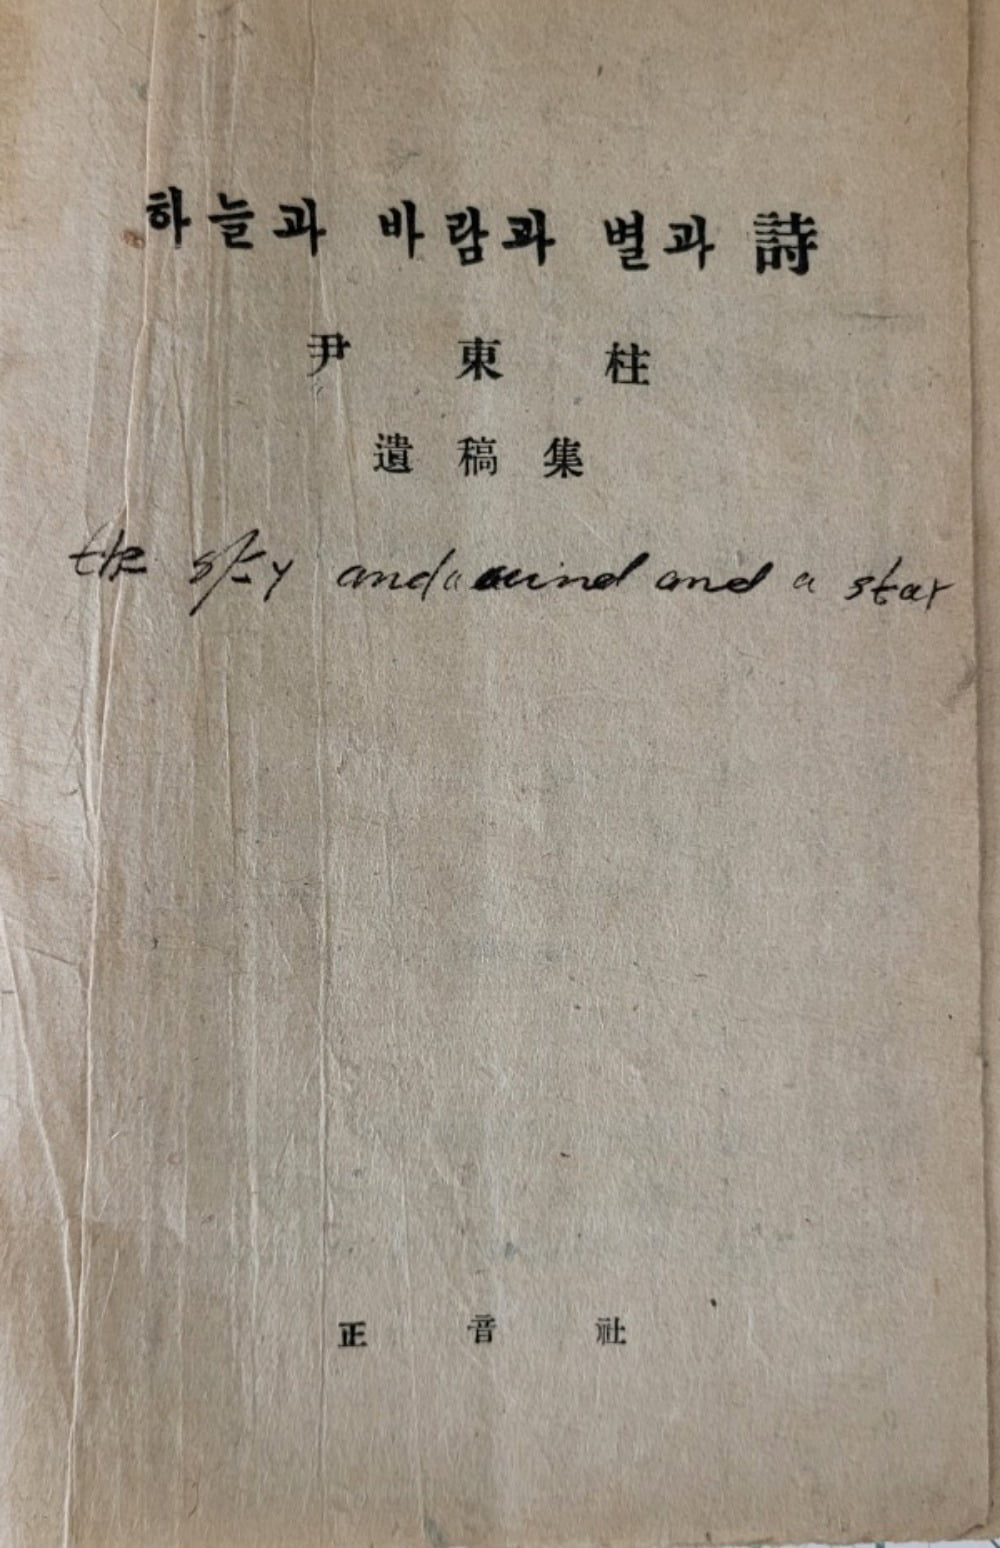 하늘과 바람과 별과 詩
尹東柱
遺稿集
the sky and a wind and a star
正音社